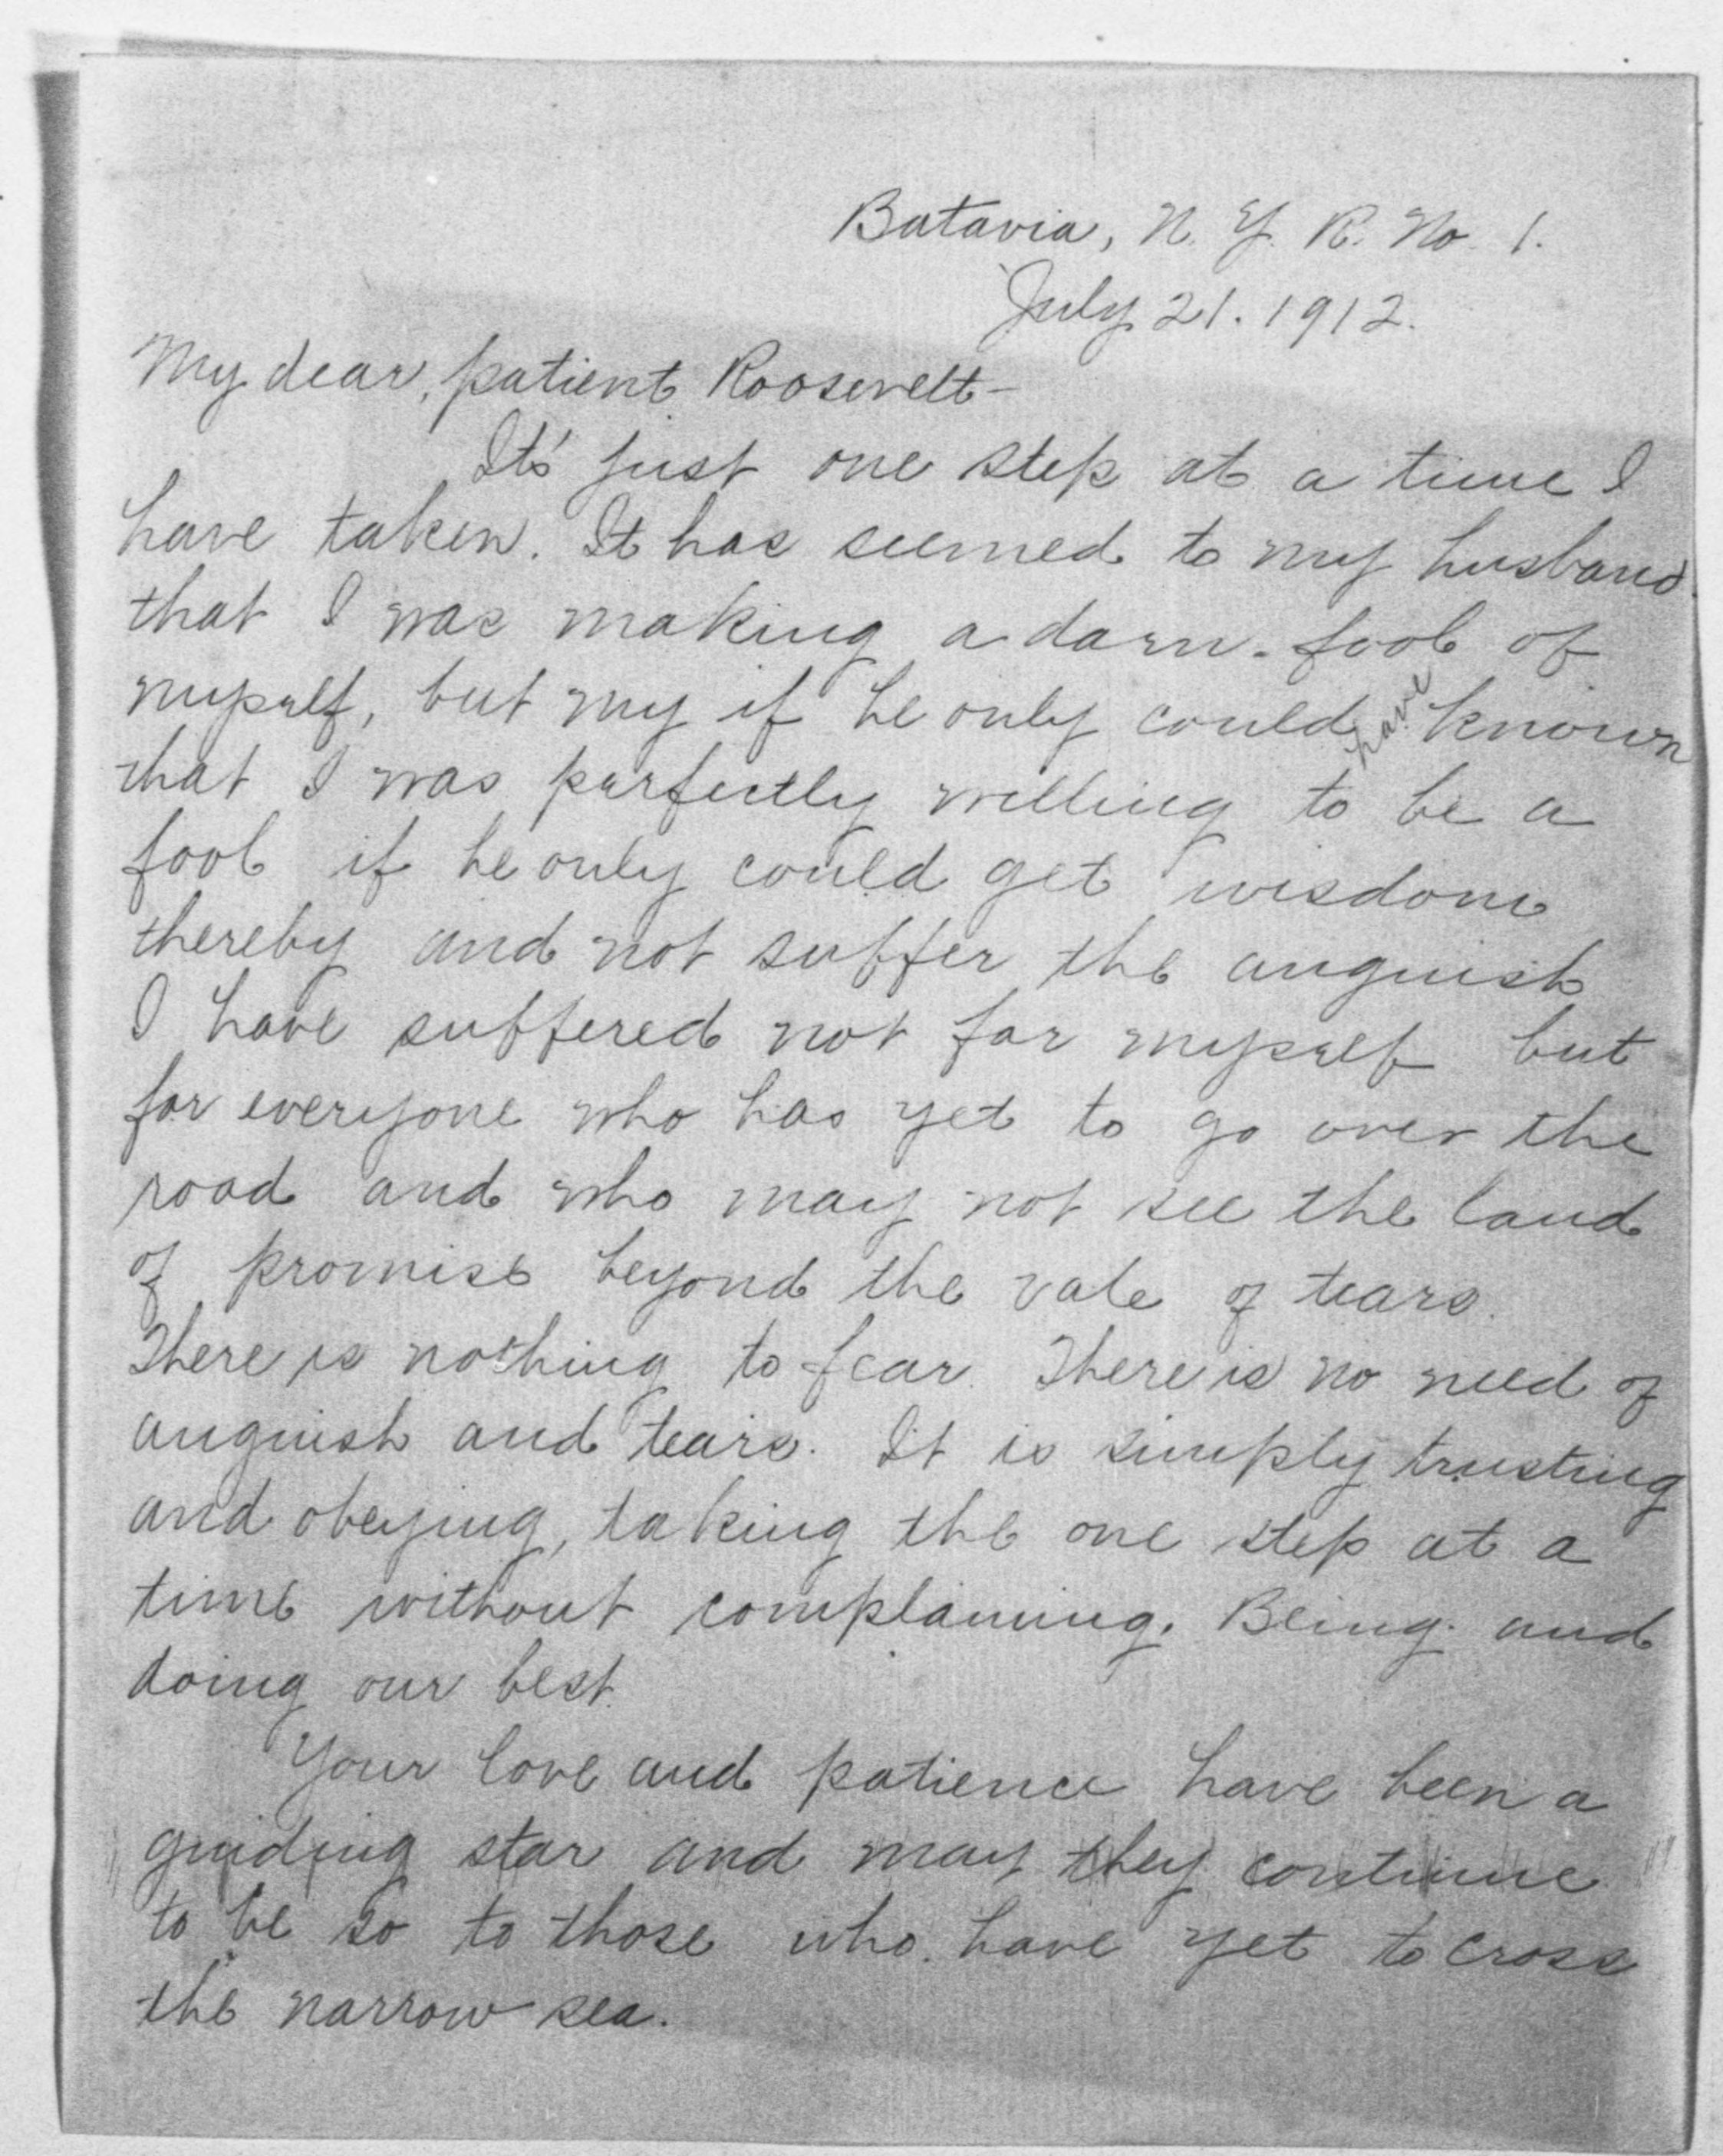 Batavia, N. Y. R. No. 1.
July 21. 1912.
My dear, patient Roosevelt-
Its' just one step at a time I
have taken. It has seemed to my husband
that I was making a darn-fool of
myself, but my if he only could have known
that I was perfectly willing to be a
fool if he only could get wisdom
thereby and not suffer the anguish
I have suffered not for myself but
for everyone who has yet to go over the
road and who may not see the land
of promise beyond the vale of tears.
There is nothing to fear. There is no need of
anguish and tears. It is simply trusting
and obeying, taking the one step at a
time without complaining. Being and
doing our best.
Your love and patience have been a
guiding star and may they continue
to be so to those who have yet to cross
the narrow sea.